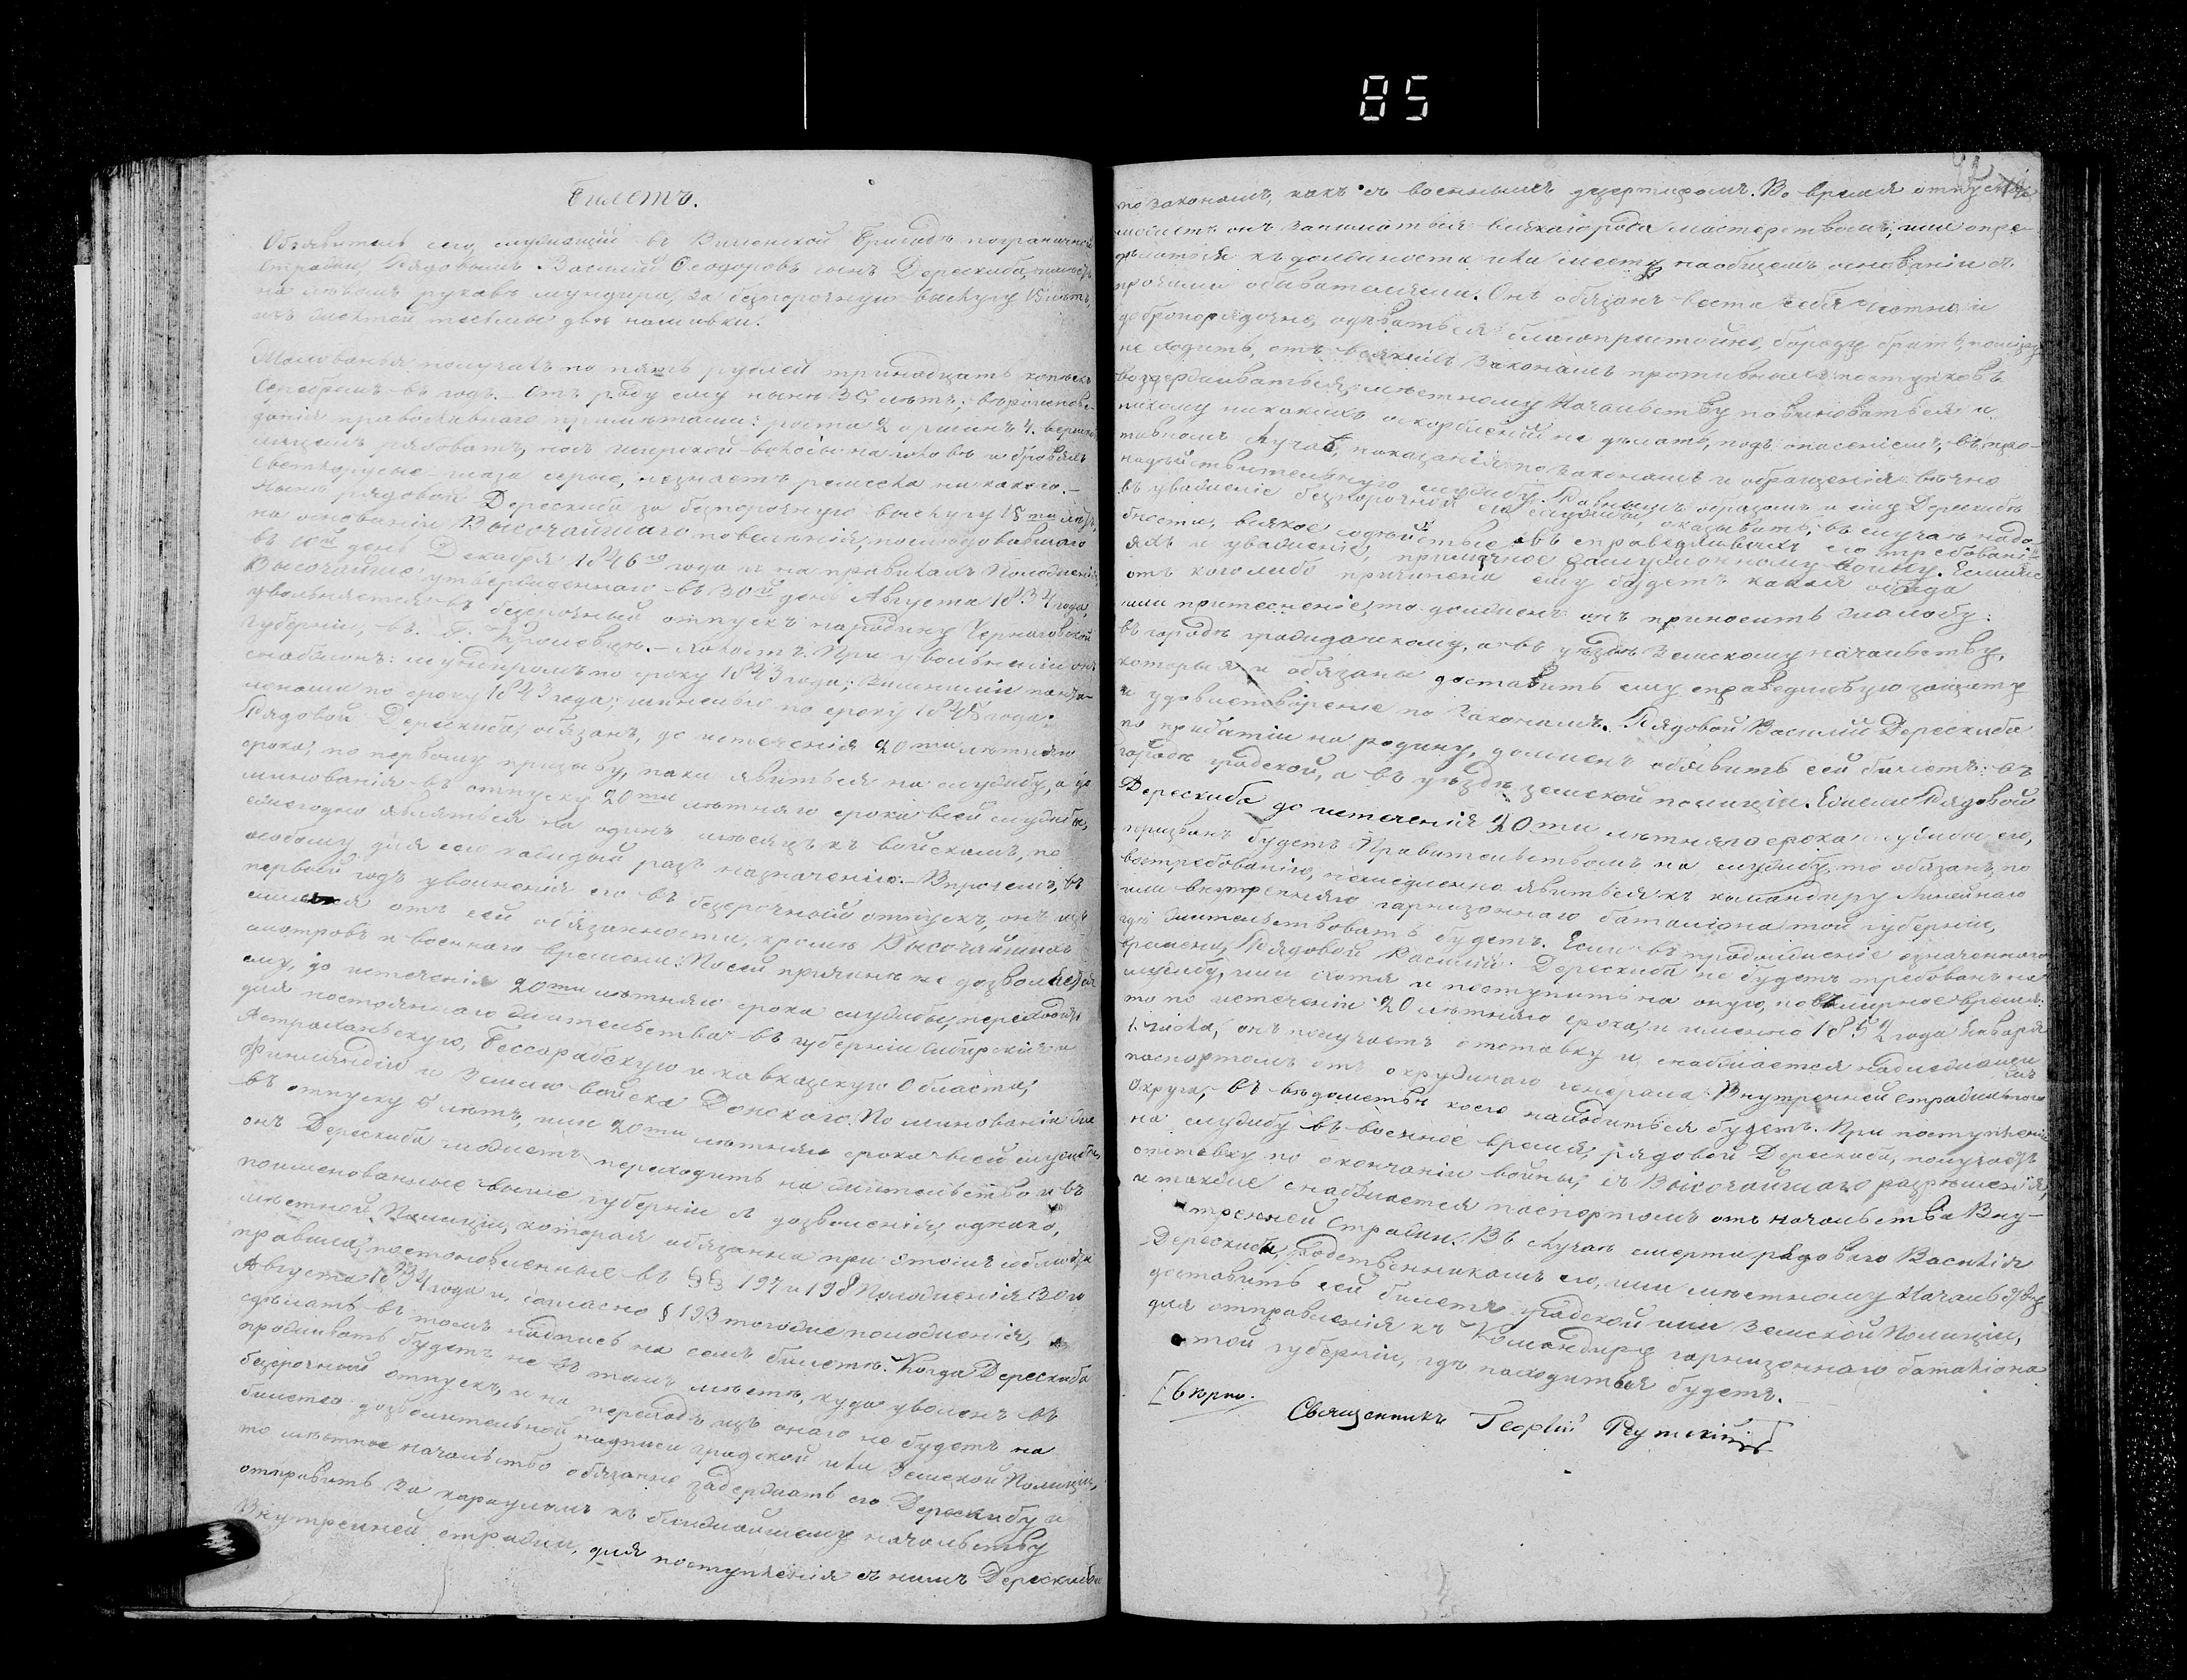 85
Билетъ.
Объявитель сего, служащій въ Виленской Бригадѣ пограничной
стражи, Рядовымъ Василій Ѳеодоровъ сынъ Дерескиба, имѣетъ
на лѣвомъ рукавѣ мундира, за безпорочную выслугу 15 лѣтъ,
изъ желтой тесьмы двѣ нашивки.
Жалованья получалъ по пять рублей тринадцать копѣекъ
серебромъ въ годъ. Отъ роду ему нынѣ 35 лѣтъ; вѣроисповѣ-
данія православнаго, примѣтами: роста 2 аршинъ 4. верш
лицемъ рябоватъ, носъ широкой волосы на головѣ и бровяхъ
Светлорусые глаза серые, незнаетъ ремесла никакого.
Нынѣ рядовой Дерескиба за безпорочную выслугу 15 ти лѣтъ,
на основаніи Высочайшаго повелѣнія, последовавшаго
въ 10й день Декабря 1846го года и на правилахъ Положенія
Высочайше утвержденнаго въ 30й день Августа 1834 года,
увольняется въ безсрочный отпускъ на родину Черниговской
губерніи, въ. Г. Кролевецъ. При увольненіи онъ
снабженъ: мундиромъ по сроку 1843 года; Зимними панта-
лонами по сроку 1843 года; шинелью по сроку 1845 года;
Рядовой Дерескиба, обязанъ, до истеченія 20ти лѣтняго
срока, по первому призыву, паки явиться на службу, а до
минованія въ отпуску 20ти лѣтняго срока всей службы,
ежегодно являться на одинъ мѣсяцъ къ войскамъ, по
особому для сего каждый разъ назначенію. Впрочемъ, въ
первый годъ увольненія его въ безсрочный отпускъ, онъ
отъ сей обязанности, кромѣ Высочайшихъ
смотровъ и военнаго времени. По сей причинѣ не дозволяется
ему, до истеченія 20ти лѣтняго срока службы, переходить
для постояннаго жительства въ губерніи Сибирскія и
Астраханскую, Бессарабскую и кавказскую Области,
Финляндію и Землю войска Донскаго. По минованіи же
въ отпуску 5 лѣтъ, или 20ти лѣтняго срока всей службы,
онъ Дерескиба можетъ переходить на жительство и въ
поименованные выше губерніи съ дозволенія, однако,
мѣстной Полиціи, которая обязанна при этомъ соблюсти
правила, постановленные въ §§ 197 и 198 Положенія 30го
Августа 1834 года и, согласно § 193 тогоже положенія,
сдѣлать въ томъ надпись на семъ билетѣ. Когда Дерескиба
проживать будетъ не въ томъ мѣстѣ, куда уволенъ въ
безсрочный отпускъ, и на переходъ изъ онаго не будетъ на
билетѣ дозволительной надписи градской или Земской Полиціи,
то мѣстное начальство обязанно задержать его Дерескибу и
отправить за карауломъ къ ближайшему начальству
Внутренней стражи, для поступленія съ нимъ Дерескибою
по законамъ, какъ съ военнымъ дезертиромъ. Во время отпуска
можетъ онъ заниматься всякаго рода мастерствомъ, или опре-
дѣляться къ должности или месту, на общемъ основаніи съ
прочими обывателями. Онъ обязанъ вести себя честно и
добропорядочно, одѣваться благопристойно, бороду брить, по
не ходить, отъ всякихъ Законамъ противныхъ поступковъ
воздерживаться, мѣстному Начальству повиноваться и
никому никакихъ оскорбленій не дѣлать, подъ опасеніемъ, въ про-
тивномъ случаѣ, наказанія по законамъ и обращенія вѣчно
на действительную службу. Равнымъ образомъ и ему Дерескибѣ
въ уваженіе безпорочной его службы, оказывать, въ случаѣ надо-
бности, всякое содѣйствіе въ справедливыхъ его требовані-
яхъ и уваженіе, приличное заслуженному воину. Ежели
отъ коголибо причинена ему будетъ какая обида
или притесненіе, то долженъ онъ приносить жалобу:
въ городѣ гражданскому, а въ уѣздѣ Земскому начальству,
которые и обязаны доставить ему справедливую защиту
и удовлетвореніе по Законамъ. Рядовой Василій Дерескиба
по прибытіи на родину, долженъ объявить сей билетъ: въ
городѣ градской, а въ уѣздѣ земской полиціи. Ежели Рядовой
Дерескиба до истеченія 20 ти лѣтняго срока службы его,
призванъ будетъ Правительствомъ на службу, то обязанъ, по
востребованію, немедленно явиться къ командиру Линейнаго
или внутренняго гарнизоннаго баталіона той губерніи,
гдѣ жительствовать будетъ. Если въ продолженіе означеннаго
времени, Рядовой Василій Дерескиба не будетъ требованъ на
службу, или хотя и поступитъ на оную, но въ мирное время:
то по истеченіи 20 лѣтняго срока, и именно 1852 года Января
1. числа, онъ получаетъ отставку и снабжается надлежащимъ
паспортомъ отъ окружнаго генерала Внутренней стражи того
Округа, въ вѣдомствѣ коего находиться будетъ. При поступленіи
на службу въ военное время, рядовой Дерескиба, получаетъ
отставку по окончаніи войны, съ Высочайшаго разрешенія,
и также снабжается паспортомъ отъ начальства Вну-
тренней Стражи. Въ случаѣ смерти рядоваго Василія
Дерескибы, родственникамъ его, или мѣстному Начальству
доставить сей билетъ градской или Земской Полиціи,
для отправленія къ Командиру гарнизоннаго баталіона
той губерніи, гдѣ находиться будетъ.
Вѣрно.
Священникъ Георгій Реутскій